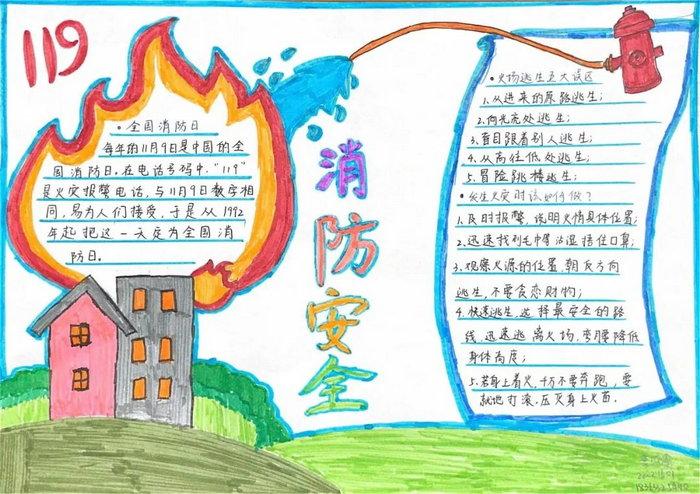 119
消防安全
·全国消防日
每年的11月9日是中国的全
国消防日。在电话号码中，“119”
是火灾报警电话，与11月9日数字相
同，易为人们接受，于是从1992
年起把这一天定为全国消
防日。
·火场逃生五大误区
1.从进来的原路逃生；
2.向光亮处逃生；
3.盲目跟着别人逃生；
4.从高往低处逃生；
5.冒险跳楼逃生；
·发生火灾时该如何做？
1.及时报警，说明火情具体位置；
2.迅速找到毛巾等沾湿捂住口鼻；
3.观察火源的位置，朝反方向
逃生，不要贪恋财物；
4.快速逃生，选择最安全的路
线，迅速逃离火场，弯腰降低
身体高度；
5.若身上着火，千万不要奔跑，要
就地打滚，压灭身上火苗。